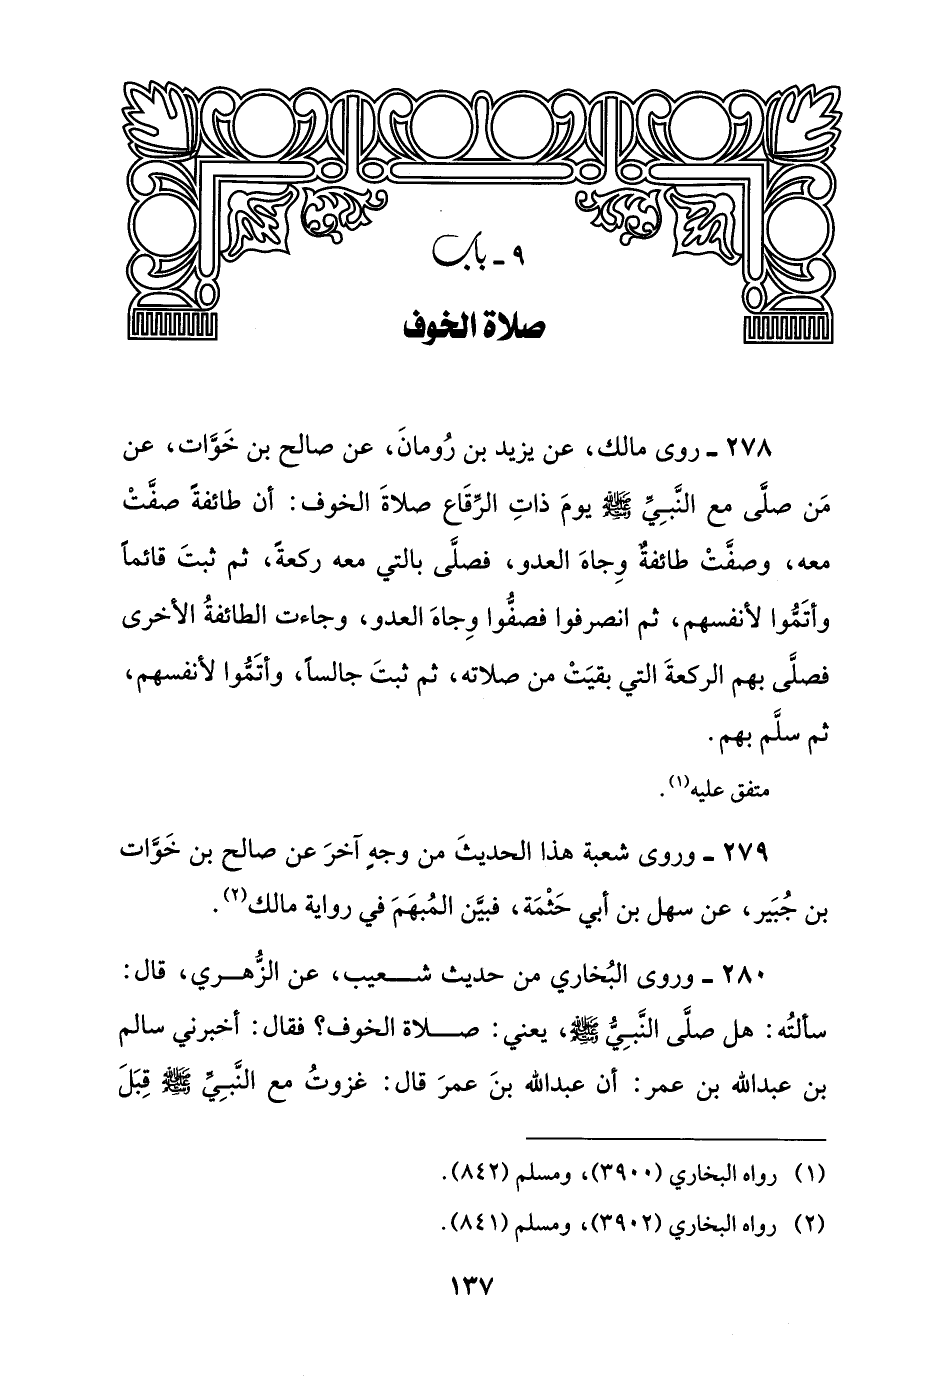 ٩ - باب
صلاة الخوف
٢٧٨ - روى مالك، عن يزيد بن رُومانَ، عن صالح بن خَوَّات، عن
مَن صلَّى مع النَّبيِّ ﷺ يومَ ذاتِ الرِّقَاع صلاةَ الخوف: أن طائفةً صفَّتْ
معه، وصفَّتْ طائفةٌ وِجاهَ العدو، فصلَّى بالتي معه ركعةً، ثم ثبتَ قائماً
وأتَمُّوا لأنفسهم، ثم انصرفوا فصفُّوا وِجاهَ العدو، وجاءت الطائفةُ الأخرى
فصلَّى بهم الركعةَ التي بقيَتْ من صلاته، ثم ثبتَ جالساً، وأتَمُّوا لأنفسهم،
ثم سلَّم بهم.
متفق عليه(١).
٢٧٩ - وروى شعبة هذا الحديثَ من وجهٍ آخرَ عن صالح بن خَوَّات
بن جُبَير، عن سهل بن أبي حَثْمَة، فبيَّن المُبهَمَ في رواية مالك(٢).
٢٨٠ - وروى البُخاري من حديث شعيب، عن الزُّهري، قال:
سألتُه: هل صلَّى النَّبيُّ ﷺ، يعني: صلاة الخوف؟ فقال: أخبرني سالم
بن عبدالله بن عمر: أن عبدالله بنَ عمرَ قال: غزوتُ مع النَّبيِّ ﷺ قِبَلَ
(١) رواه البخاري (٣٩٠٠)، ومسلم (٨٤٢).
(٢) رواه البخاري (٣٩٠٢)، ومسلم (٨٤١).
١٣٧